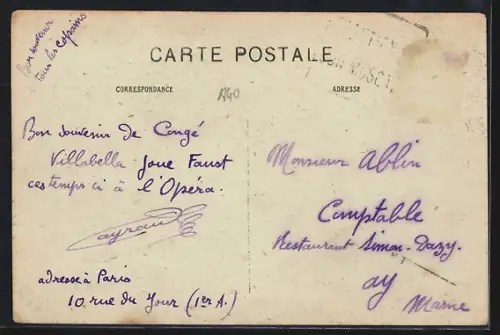 Bon souvenir
tous les copains
CARTE POSTALE
CORRESPONDANCE
ADRESSE
Bon souvenir de Congé
Villabella joue Faust
ces temps ci à l'Opéra.
adresse à Paris
10 rue du Jour (1er A.)
Monsieur Ablin
Comptable
Restaurant Simon-Dazy.
ay
Marne